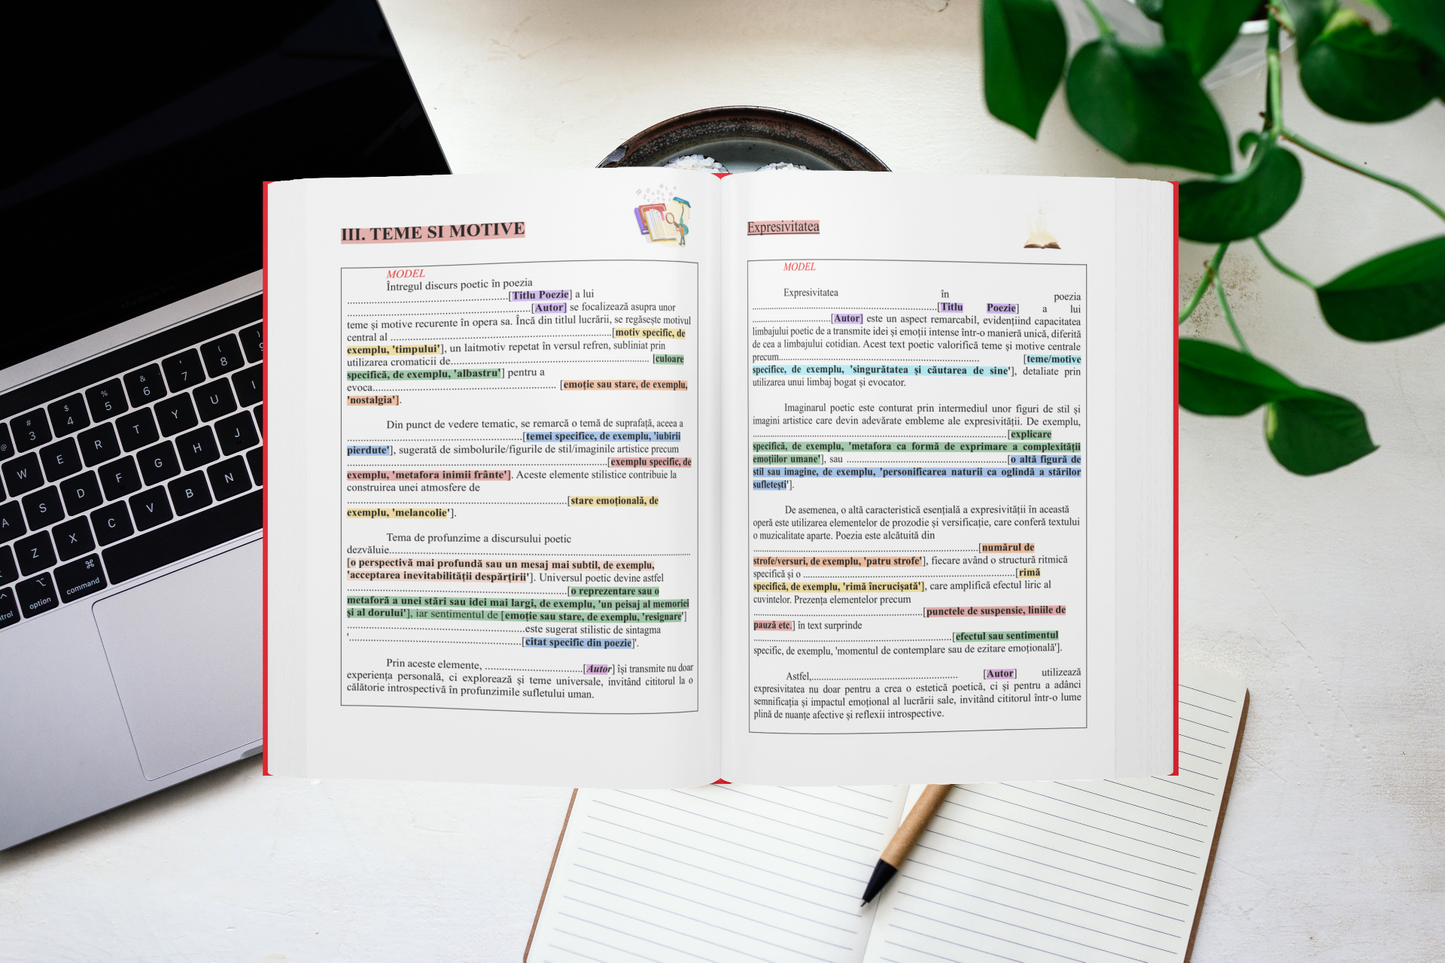 III. TEME SI MOTIVE
MODEL
Întregul discurs poetic în poezia
......................................................[Titlu Poezie] a lui
..............................................................[Autor] se focalizează asupra unor
teme și motive recurente în opera sa. Încă din titlul lucrării, se regăsește motivul
central al ..........................................................................[motiv specific, de
exemplu, 'timpului'], un laitmotiv repetat în versul refren, subliniat prin
utilizarea cromaticii de.................................................................. [culoare
specifică, de exemplu, 'albastru'] pentru a
evoca............................................................. [emoție sau stare, de exemplu,
'nostalgia'].
Din punct de vedere tematic, se remarcă o temă de suprafață, aceea a
...........................................................[temei specifice, de exemplu, 'iubirii
pierdute'], sugerată de simbolurile/figurile de stil/imaginile artistice precum
.......................................................................................[exemplu specific, de
exemplu, 'metafora inimii frânte']. Aceste elemente stilistice contribuie la
construirea unei atmosfere de
..........................................................................[stare emoțională, de
exemplu, 'melancolie'].
Tema de profunzime a discursului poetic
dezvăluie.....................................................................................................
[o perspectivă mai profundă sau un mesaj mai subtil, de exemplu,
'acceptarea inevitabilității despărțirii']. Universul poetic devine astfel
..........................................................................[o reprezentare sau o
metaforă a unei stări sau idei mai largi, de exemplu, 'un peisaj al memoriei
și al dorului'], iar sentimentul de [emoție sau stare, de exemplu, 'resignare']
............................................................este sugerat stilistic de sintagma
'..........................................................[citat specific din poezie]'.
Prin aceste elemente, .................................[Autor] își transmite nu doar
experiența personală, ci explorează și teme universale, invitând cititorul la o
călătorie introspectivă în profunzimile sufletului uman.
Expresivitatea
MODEL
Expresivitatea în poezia
..............................................................[Titlu Poezie] a lui
..........................[Autor] este un aspect remarcabil, evidențiind capacitatea
limbajului poetic de a transmite idei și emoții intense într-o manieră unică, diferită
de cea a limbajului cotidian. Acest text poetic valorifică teme și motive centrale
precum................................................................... [teme/motive
specifice, de exemplu, 'singurătatea și căutarea de sine'], detaliate prin
utilizarea unui limbaj bogat și evocator.
Imaginarul poetic este conturat prin intermediul unor figuri de stil și
imagini artistice care devin adevărate embleme ale expresivității. De exemplu,
.....................................................................................[explicare
specifică, de exemplu, 'metafora ca formă de exprimare a complexității
emoțiilor umane'], sau ......................................................[o altă figură de
stil sau imagine, de exemplu, 'personificarea naturii ca oglindă a stărilor
sufletești'].
De asemenea, o altă caracteristică esențială a expresivității în această
operă este utilizarea elementelor de prozodie și versificație, care conferă textului
o muzicalitate aparte. Poezia este alcătuită din
...........................................................................[numărul de
strofe/versuri, de exemplu, 'patru strofe'], fiecare având o structură ritmică
specifică și o .......................................................................[rimă
specifică, de exemplu, 'rimă încrucișată'], care amplifică efectul liric al
cuvintelor. Prezența elementelor precum
.........................................................[punctele de suspensie, liniile de
pauză etc.] în text surprinde
..................................................................[efectul sau sentimentul
specific, de exemplu, 'momentul de contemplare sau de ezitare emoțională'].
Astfel,................................................ [Autor] utilizează
expresivitatea nu doar pentru a crea o estetică poetică, ci și pentru a adânci
semnificația și impactul emoțional al lucrării sale, invitând cititorul într-o lume
plină de nuanțe afective și reflexii introspective.
# 3
$ 4
% 5
^ 6
& 7
* 8
( 9
W E R T Y U I
A S D F G H J
Z X C V B N
control
option
⌘ command